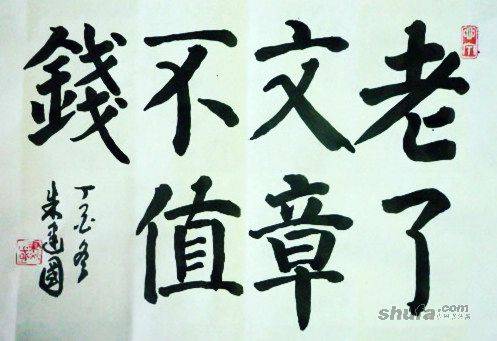 老了
文章
不值
錢
丁酉冬
朱建國
shufa.com